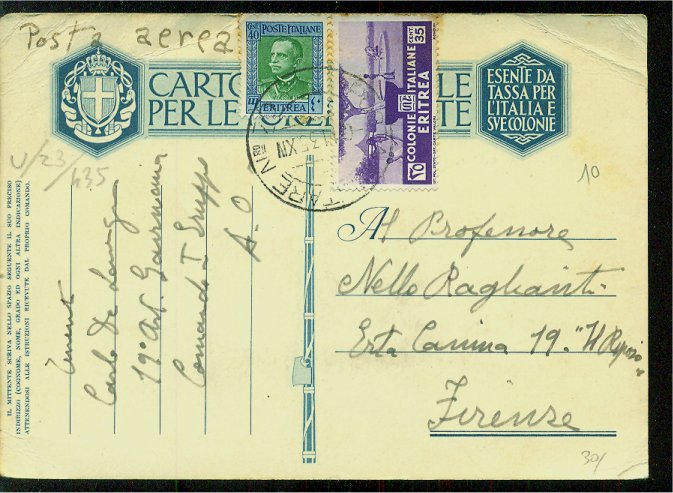 Posta aerea
POSTE ITALIANE
CENT. 40
ERITREA
CENT 35
COLONIE ITALIANE
ERITREA
CARTO
LE
PER LE FOR
TE
ESENTE DA
TASSA PER
L'ITALIA E
SVE COLONIE
35 XIV
10
IL MITTENTE SCRIVA NELLO SPAZIO SEGUENTE IL SUO PRECISO
INDIRIZZO (COGNOME, NOME, GRADO ED OGNI ALTRA INDICAZIONE)
ATTENENDOSI ALLE ISTRUZIONI RICEVUTE DAL PROPRIO COMANDO.
Carlo De
19° Art. Gavinana
Comando I Gruppo
A. O
Al Professore
Nello Raglianti
Erta Canina 19. "Il Riposo"
Firenze
30/